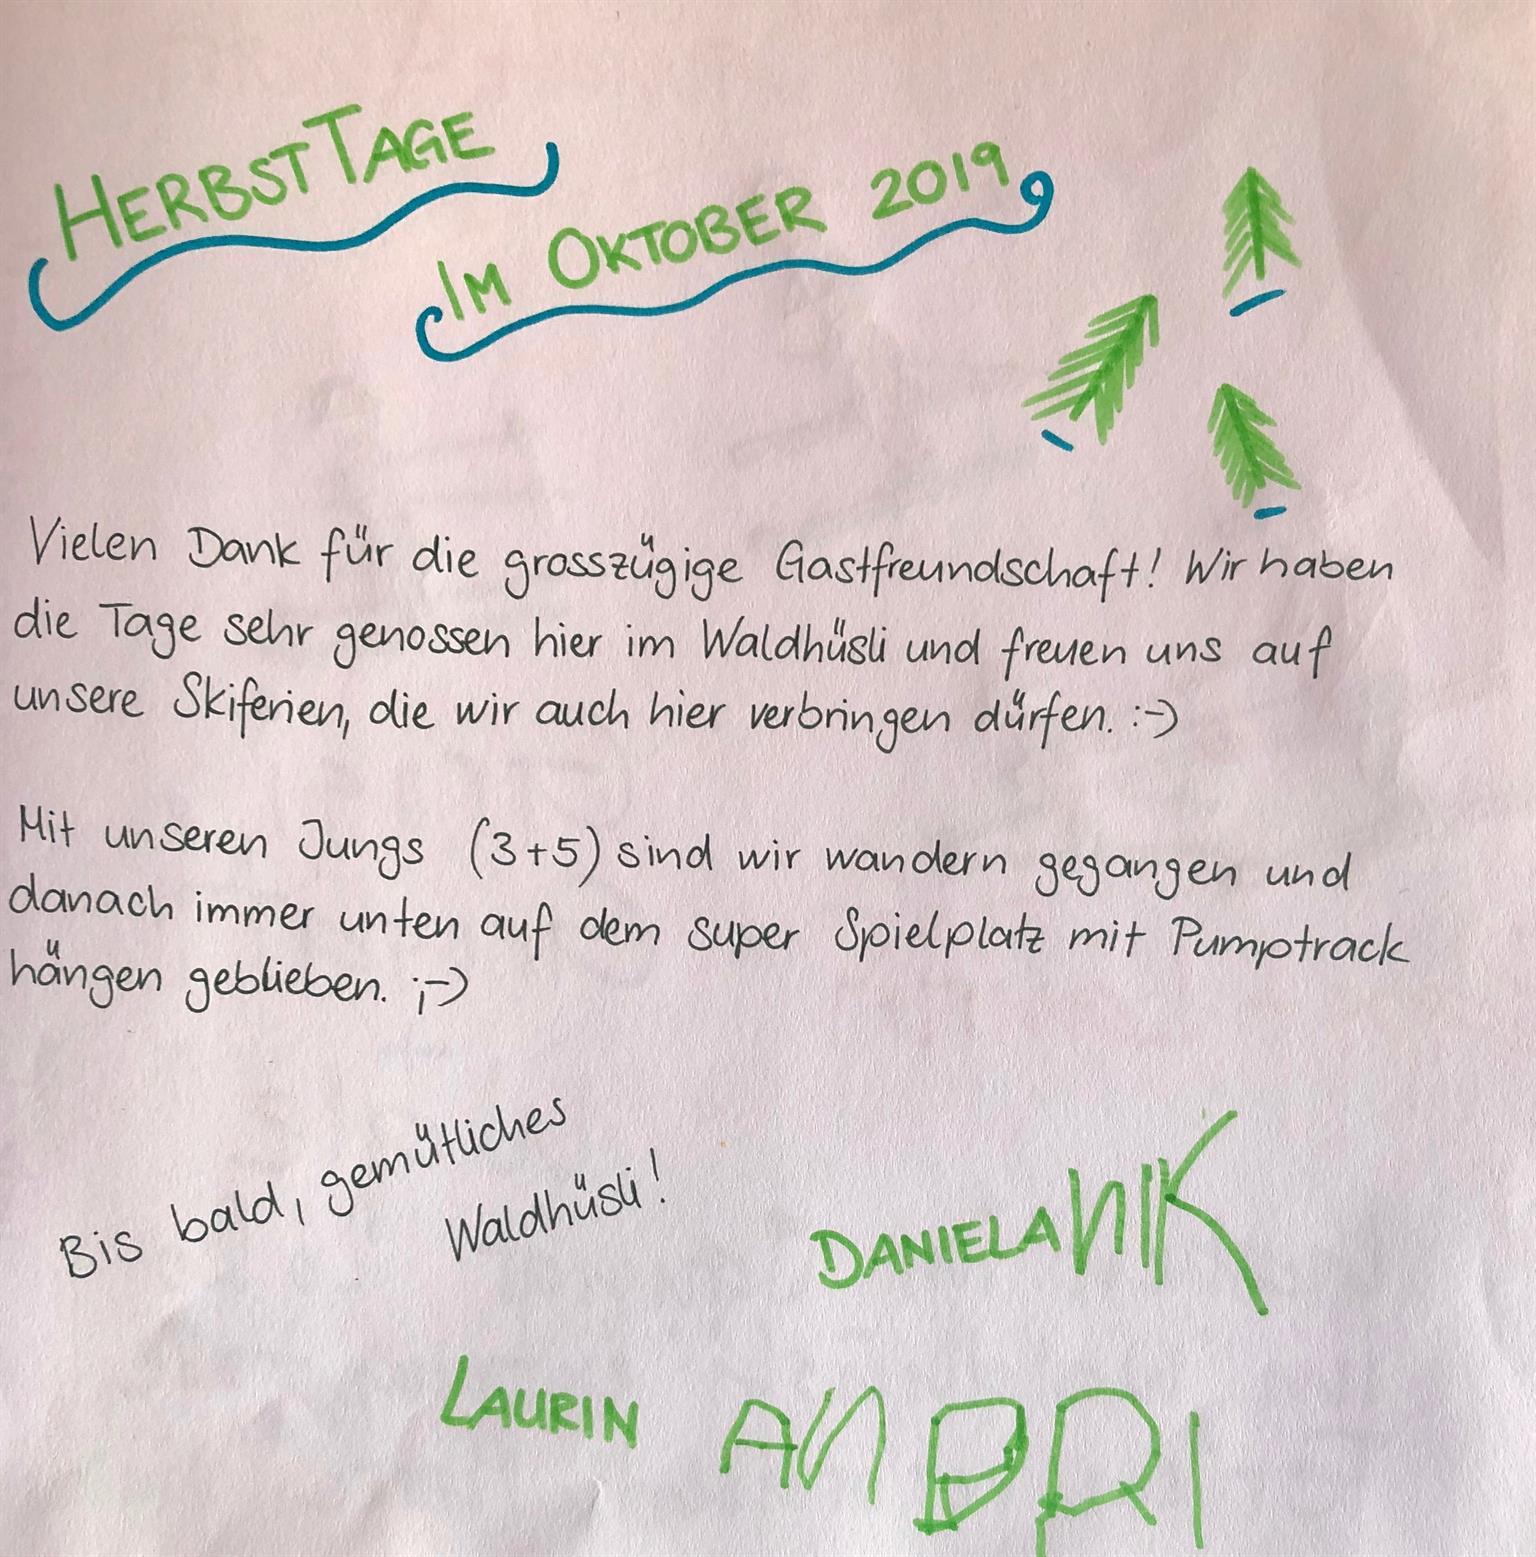 HERBSTTAGE
IM OKTOBER 2019
Vielen Dank für die grosszügige Gastfreundschaft! Wir haben
die Tage sehr genossen hier im Waldhüsli und freuen uns auf
unsere Skiferien, die wir auch hier verbringen dürfen. :-)
Mit unseren Jungs (3+5) sind wir wandern gegangen und
danach immer unten auf dem super Spielplatz mit Pumptrack
hängen geblieben. ;-)
Bis bald, gemütliches
Waldhüsli!
DANIELA NIK
LAURIN ANDRI